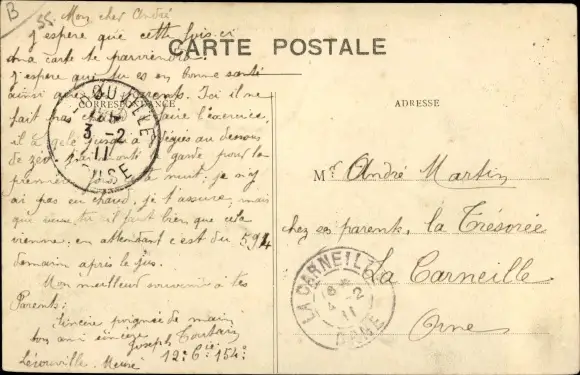 B
55. Mon cher André
J'espere que cette fois-ci
ma carte te parviendra.
J'espere que tu es en bonne santé
ainsi que tes parents. Ici il ne
fait pas chaud faire l'exercice,
il a gelé jusqu'à degrés au dessous
de zéro, j'ai monté la garde pour la
première fois la nuit; je n'y
ai pas eu chaud, je t'assure, mais
que veux-tu il faut bien que cela
vienne, en attendant c'est du 594
demain après le jus.
Mon meilleur souvenir à tes
Parents;
Sincère poignée de main
ton ami sincère
Joseph Toutain
12e Cie 154e
Lérouville. Meuse
CARTE POSTALE
CORRESPONDANCE
3 -2
11
USE
ADRESSE
Mr André Martin
chez ses parents, la Trésorée
La Carneille
Orne
LA CARNEILLE
4 -2
11
ORNE